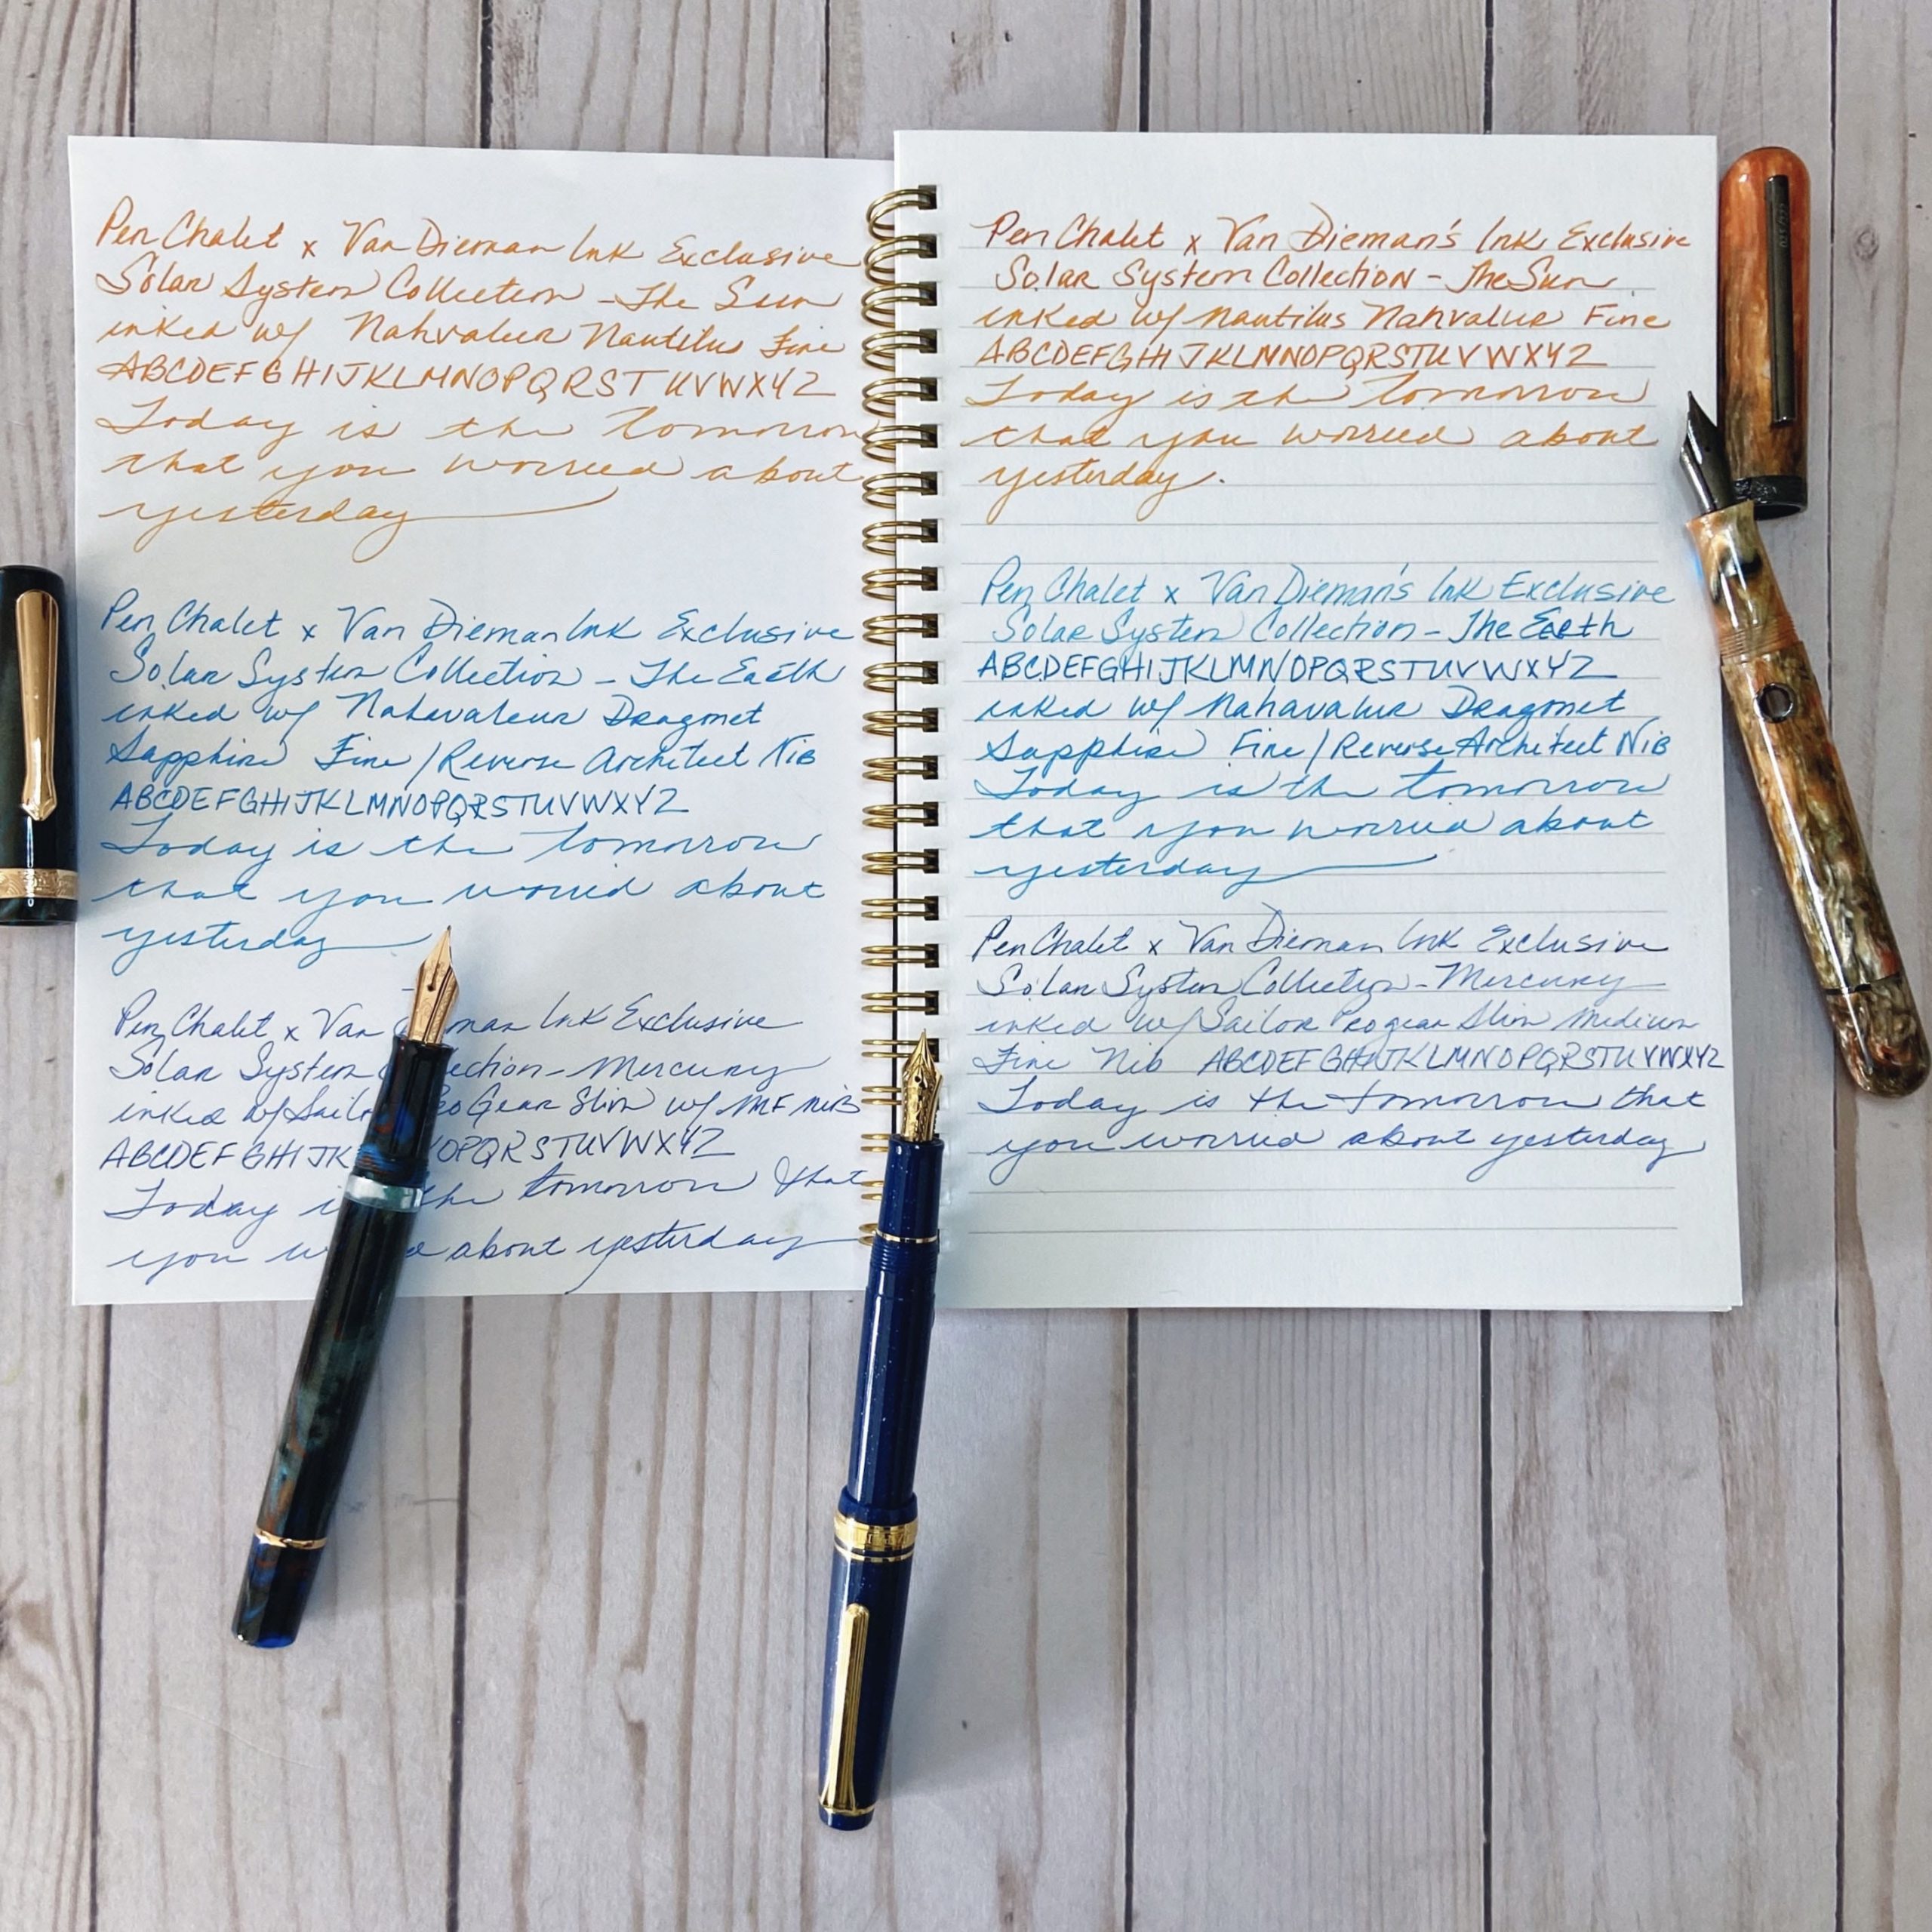 Pen Chalet x Van Dieman Ink Exclusive
Solar System Collection - The Sun
inked w/ Nahvalur Nautilus Fine
ABCDEFGHIJKLMNOPQRSTUVWXYZ
Today is the tomorrow
that you worried about
yesterday
Pen Chalet x Van Dieman Ink Exclusive
Solar System Collection - The Earth
inked w/ Nahavaleur Dragonet
Sapphire Fine/Reverse Architect Nib
ABCDEFGHIJKLMNOPQRSTUVWXYZ
Today is the tomorrow
that you worried about
yesterday
Pen Chalet x Van man Ink Exclusive
Solar System ection - Mercury
inked w/ Sailo ro Gear Slim w/ MF Nib
ABCDEFGHIJK OPQRSTUVWXYZ
Today i the tomorrow that
you w about yesterday
Pen Chalet x Van Dieman's Ink Exclusive
Solar System Collection - The Sun
inked w/ Nautilus Nahvalur Fine
ABCDEFGHIJKLMNOPQRSTUVWXYZ
Today is the tomorrow
that you worried about
yesterday.
Pen Chalet x Van Dieman's Ink Exclusive
Solar System Collection - The Earth
ABCDEFGHIJKLMNOPQRSTUVWXYZ
inked w/ Nahavalur Dragonet
Sapphire Fine/Reverse Architect Nib
Today is the tomorrow
that you worried about
yesterday
Pen Chalet x Van Dieman Ink Exclusive
Solar System Collection - Mercury
inked w/ Sailor Pro gear Slim Medium
Fine Nib ABCDEFGHIJKLMNOPQRSTUVWXYZ
Today is the tomorrow that
you worried about yesterday